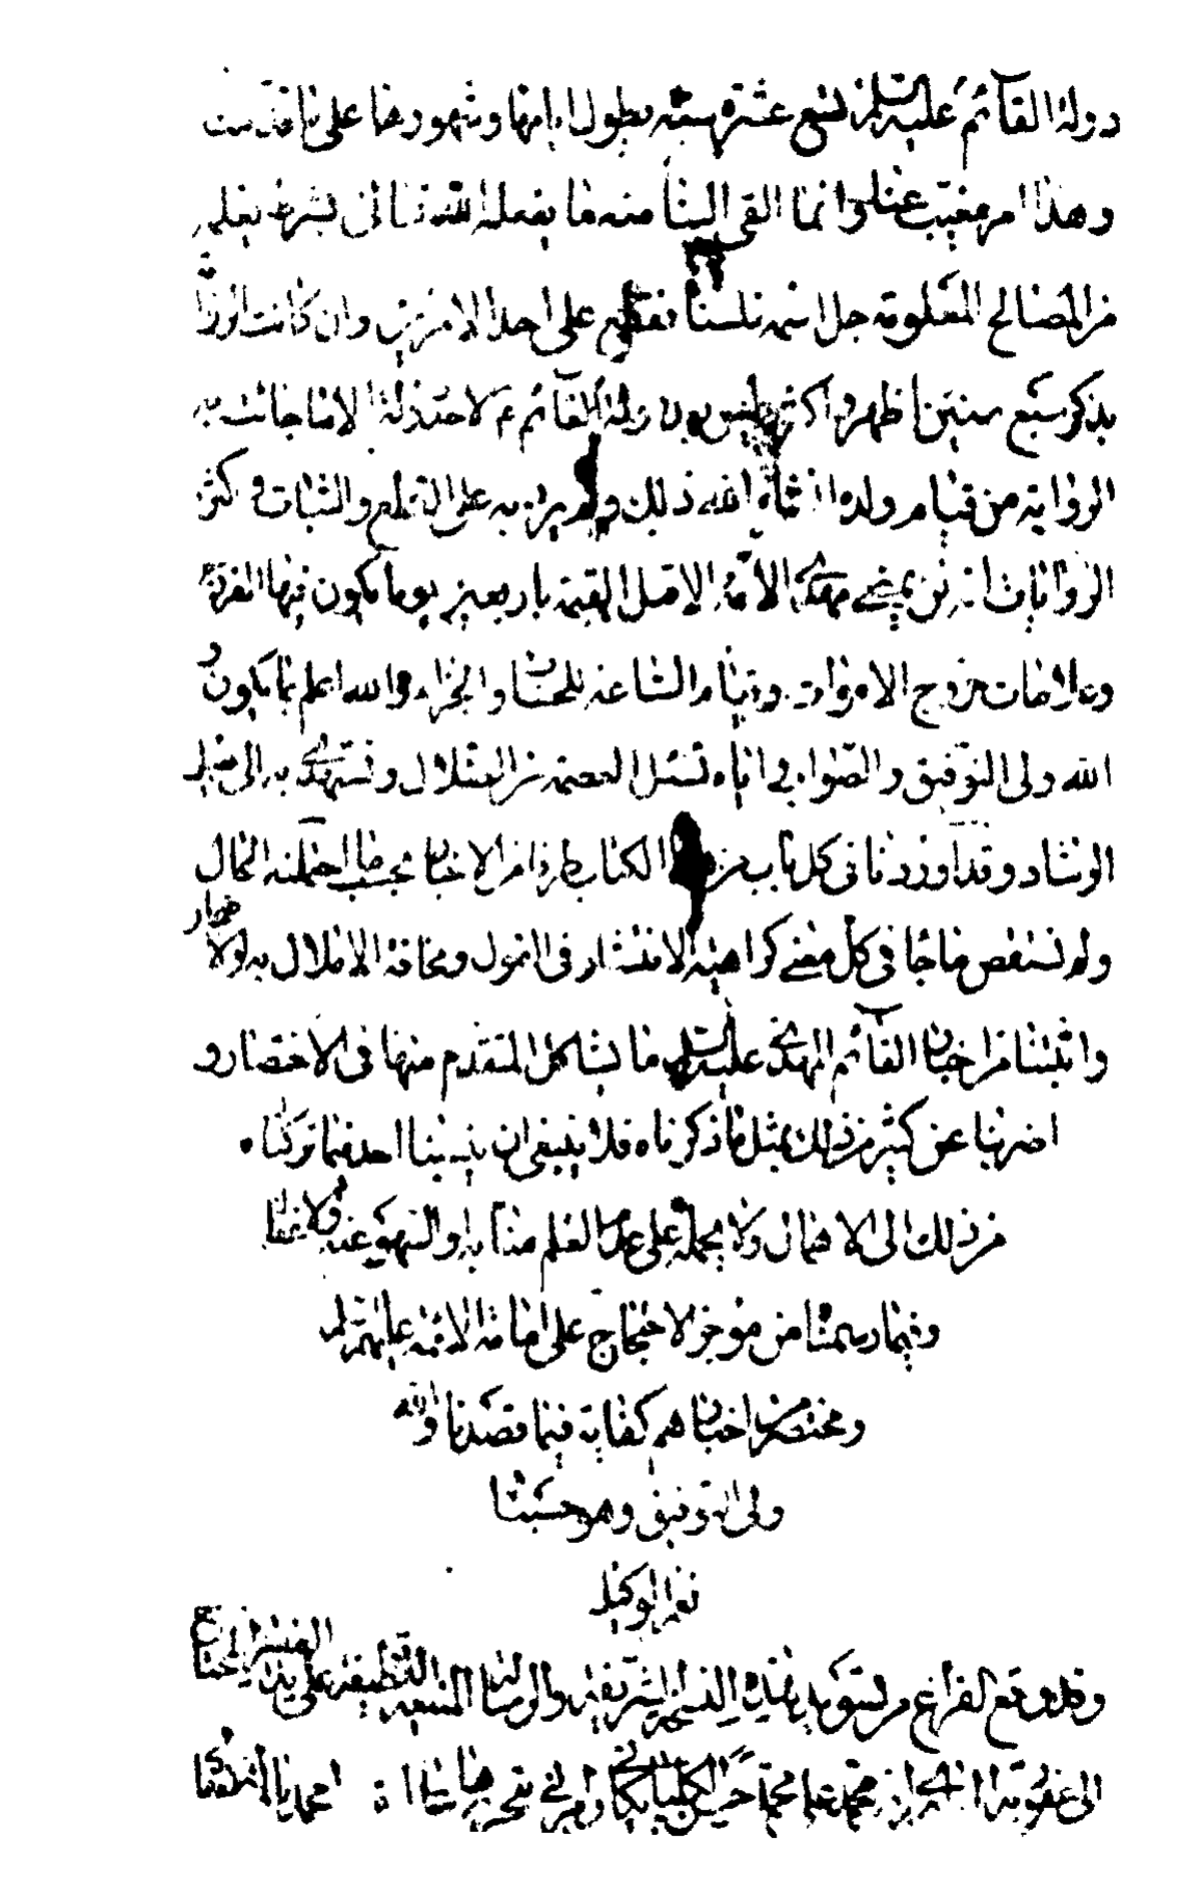 دولة القائم عليه السلم تسع عشرة سنة يطول ايامها وشهورها على ما قدمت
وهذا امر مغيب عنا وانما القى الينا منه ما يفعله الله تعالى بشرط يعلمه
من المصالح المعلومة جل اسمه فلسنا نقطع على احد الامرين وان كانت الرواية
بذكر سبع سنين اظهر واكثر وليس بعد دولة القائم ع لاحد دولة الا ما جائت به
الرواية من قيام ولده انشاء الله ذلك ولم يرد به على القطع والثبات واكثر
الروايات انه لن يمضي مهدي الأمة الا قبل القيمة باربعين يوما يكون فيها الفرج
وعلامات خروج الاموات وقيام الساعة للحساب والجزاء والله اعلم بما يكون و
الله ولى التوفيق والصواب واياه نسئل العصمة من الضلال ونستهدي به الى سبيل
الرشاد وقد اوردنا فى كل باب من هذا الكتاب طرفا من الاخبار بحسب ما احتملته الحال
ولم نستقص ما جا فى كل معنى كراهية الانتشار فى القول ومخافة الاملال به والاضجار
واثبتنا من اخبار القائم المهدي عليه السلم ما يشاكل المتقدم منها فى الاختصار و
اضربنا عن كثير من ذلك بمثل ما ذكرناه فلا ينبغى ان ينسبنا احد فيما تركناه
من ذلك الى الاهمال ولا يحمله على عدم العلم منا به او السهو عنه ولا اغفال
وفيما رسمنا من موجز الاحتجاج على امامة الائمة عليهم السلم
ومختصر من اخبارهم كفاية فيما قصدناه والله
ولى التوفيق وهو حسبنا
نعم الوكيل
وقد وقع الفراغ من تسويد هذه النسخة الشريفة والرسالة اللطيفة على يد الفقير المحتاج
الى عفو ربه محمد محمد حسين الكلپايكاني فى